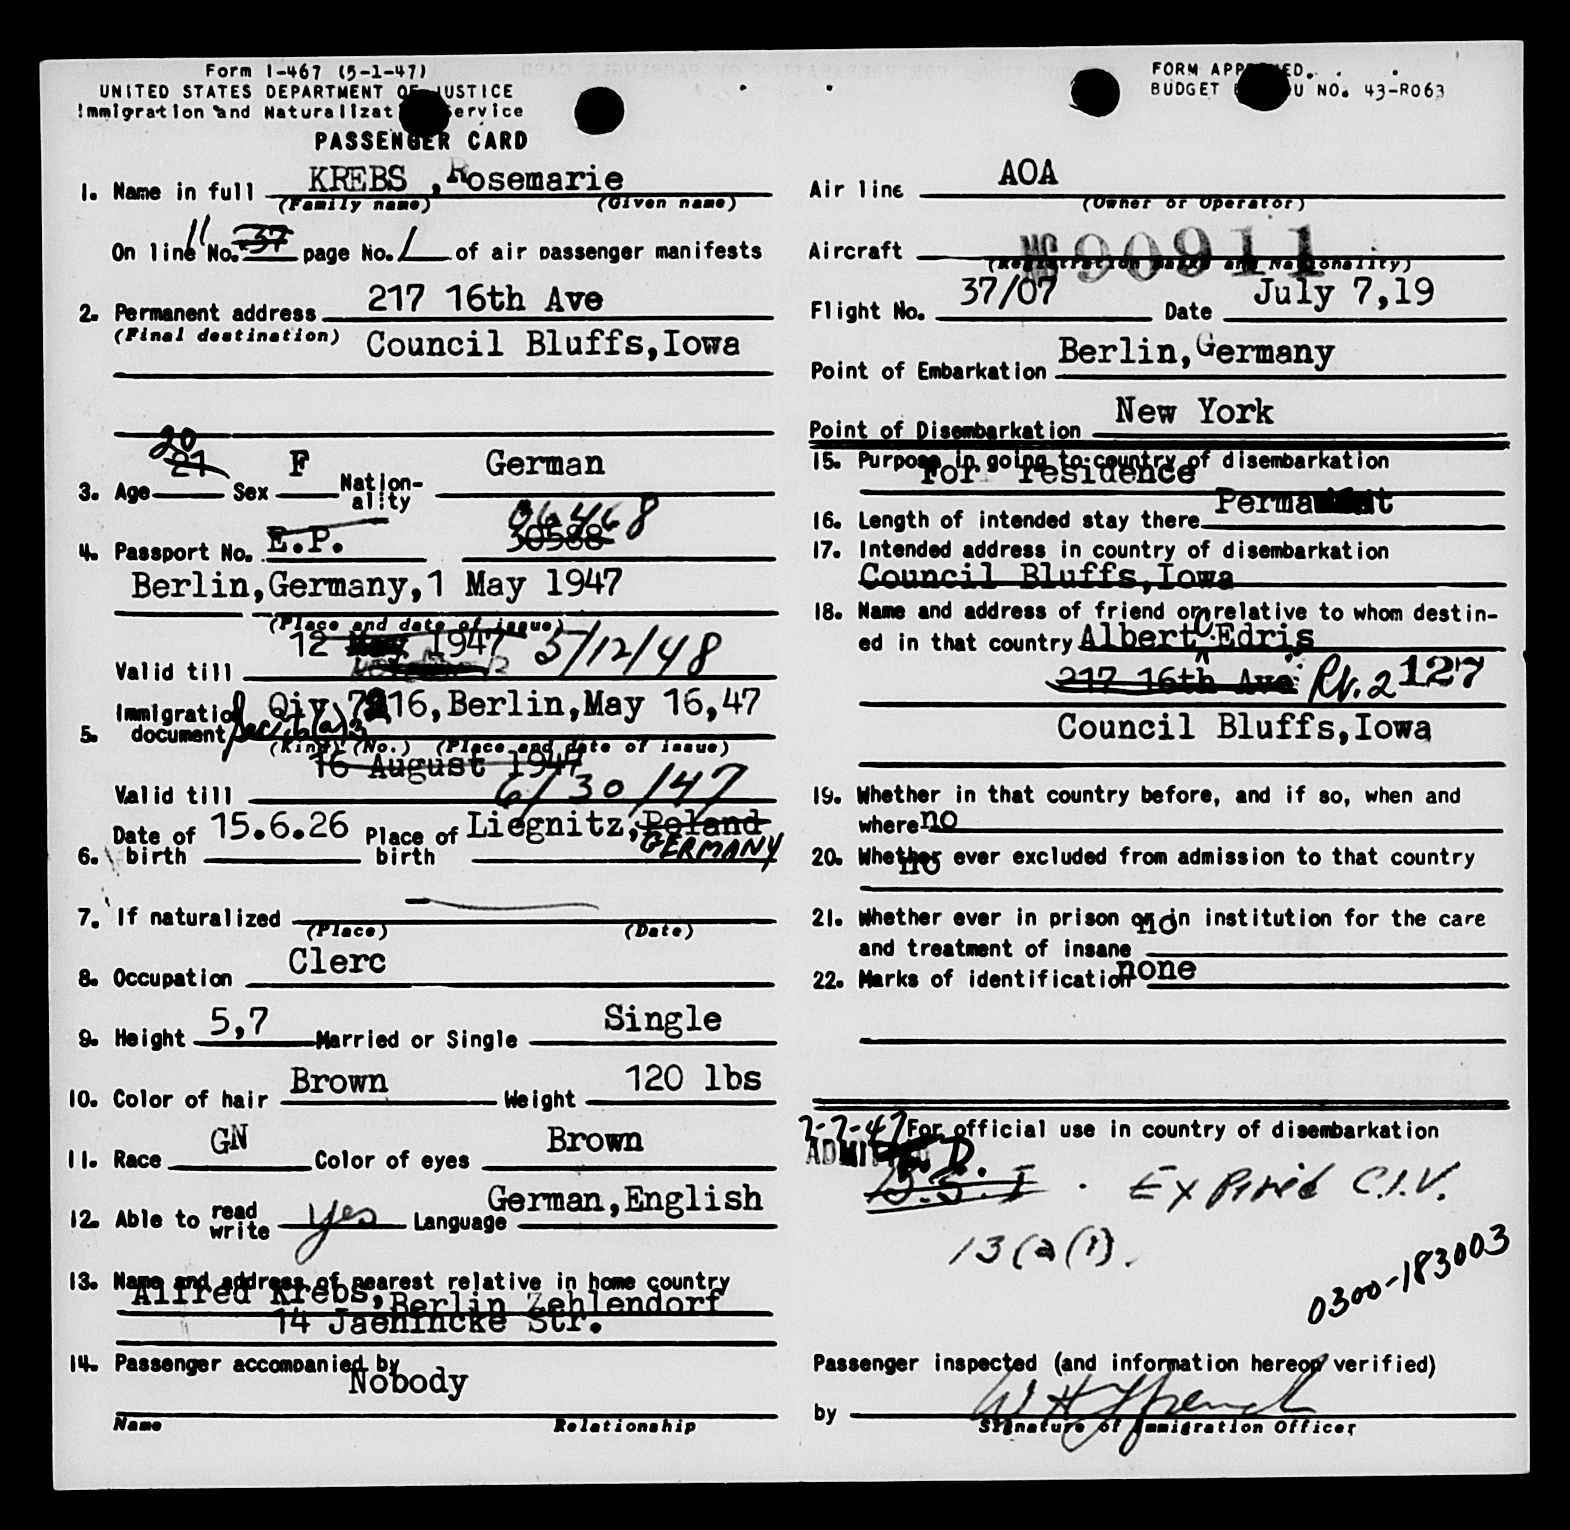 Form I-467 (5-1-47)
UNITED STATES DEPARTMENT OF JUSTICE
Immigration and Naturalizat ervice
PASSENGER CARD
1. Name in full KREBS, Rosemarie
(Family name) (Given name)
On line No. 37 11 page No. 1 of air passenger manifests
2. Permanent address 217 16th Ave
(Final destination) Council Bluffs, Iowa
20
3. Age 21 Sex F Nation-ality German
36468
4. Passport No. E.P. 30588
Berlin, Germany, 1 May 1947
(Place and date of issue)
12 1947 5/12/48
Valid till
5. Immigration document Qiv 7216, Berlin, May 16, 47
(Kind) (No.) (Place and date of issue)
16 August 1947
Valid till 6/30/47
6. Date of birth 15.6.26 Place of birth Liegnitz, Poland
GERMANY
7. If naturalized
(Place) (Date)
8. Occupation Clerc
9. Height 5,7 Married or Single Single
10. Color of hair Brown Weight 120 lbs
11. Race GN Color of eyes Brown
12. Able to read write yes Language German, English
13. Name and address of nearest relative in home country
Alfred Krebs, Berlin Zehlendorf
14 Jaehincke Str.
14. Passenger accompanied by
Nobody
Name Relationship
FORM APP ED.
BUDGET U NO. 43-R063
Air line AOA
(Owner or Operator)
Aircraft NC 90911
(Registration marks and Nationality)
Flight No. 37/07 Date July 7, 19
Point of Embarkation Berlin, Germany
Point of Disembarkation New York
15. Purpose in going to country of disembarkation
For residence
16. Length of intended stay there Permanent
17. Intended address in country of disembarkation
Council Bluffs, Iowa
18. Name and address of friend or relative to whom destin-
ed in that country Albert C. Edris
217 16th Ave Rt. 2 127
Council Bluffs, Iowa
19. Whether in that country before, and if so, when and
where no
20. Whether ever excluded from admission to that country
no
21. Whether ever in prison or in institution for the care
and treatment of insane no
22. Marks of identification none
7-7-47 For official use in country of disembarkation
ADMITTED D.
B.S.I. Expired C.I.V.
13(a(1).
0300-183003
Passenger inspected (and information hereon verified)
by W H Ffrench
Signature of Immigration Officer